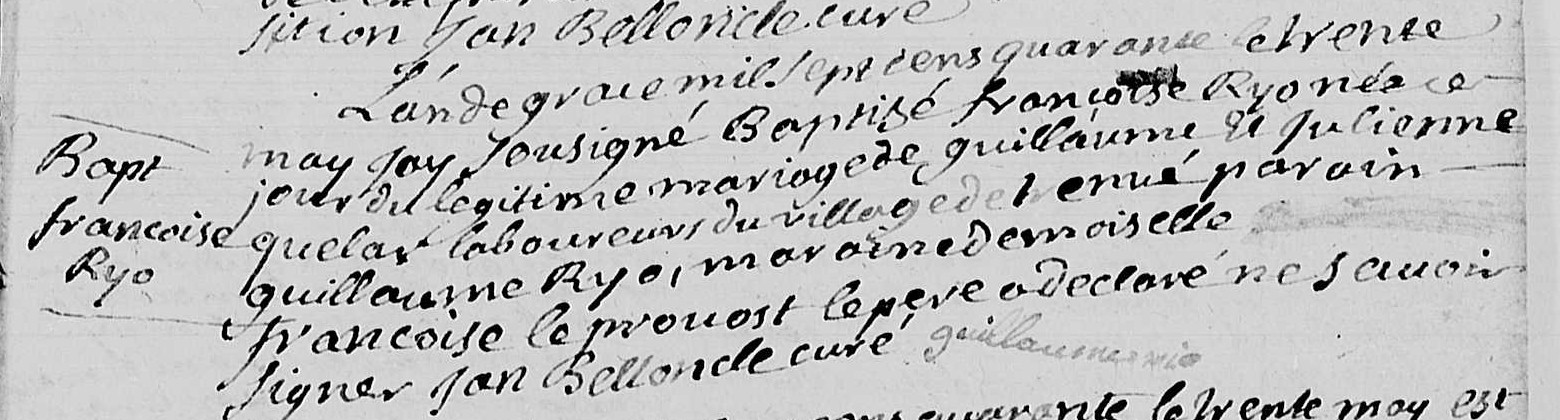 sition Jan Belloncle curé
L'an de grace mil sept cens quarante le trente
Bapt
francoise
Ryo
may jay sousigné Baptisé francoise Ryo née ce
jour du legitime mariage de guillaume Et julienne
quelar laboureurs du village de tenué parain
guillaume Ryo, maraine demoiselle
francoise le prouost le pere a declaré ne scauoir
signer Jan Belloncle curé guillaume rio
quarante le trente may est